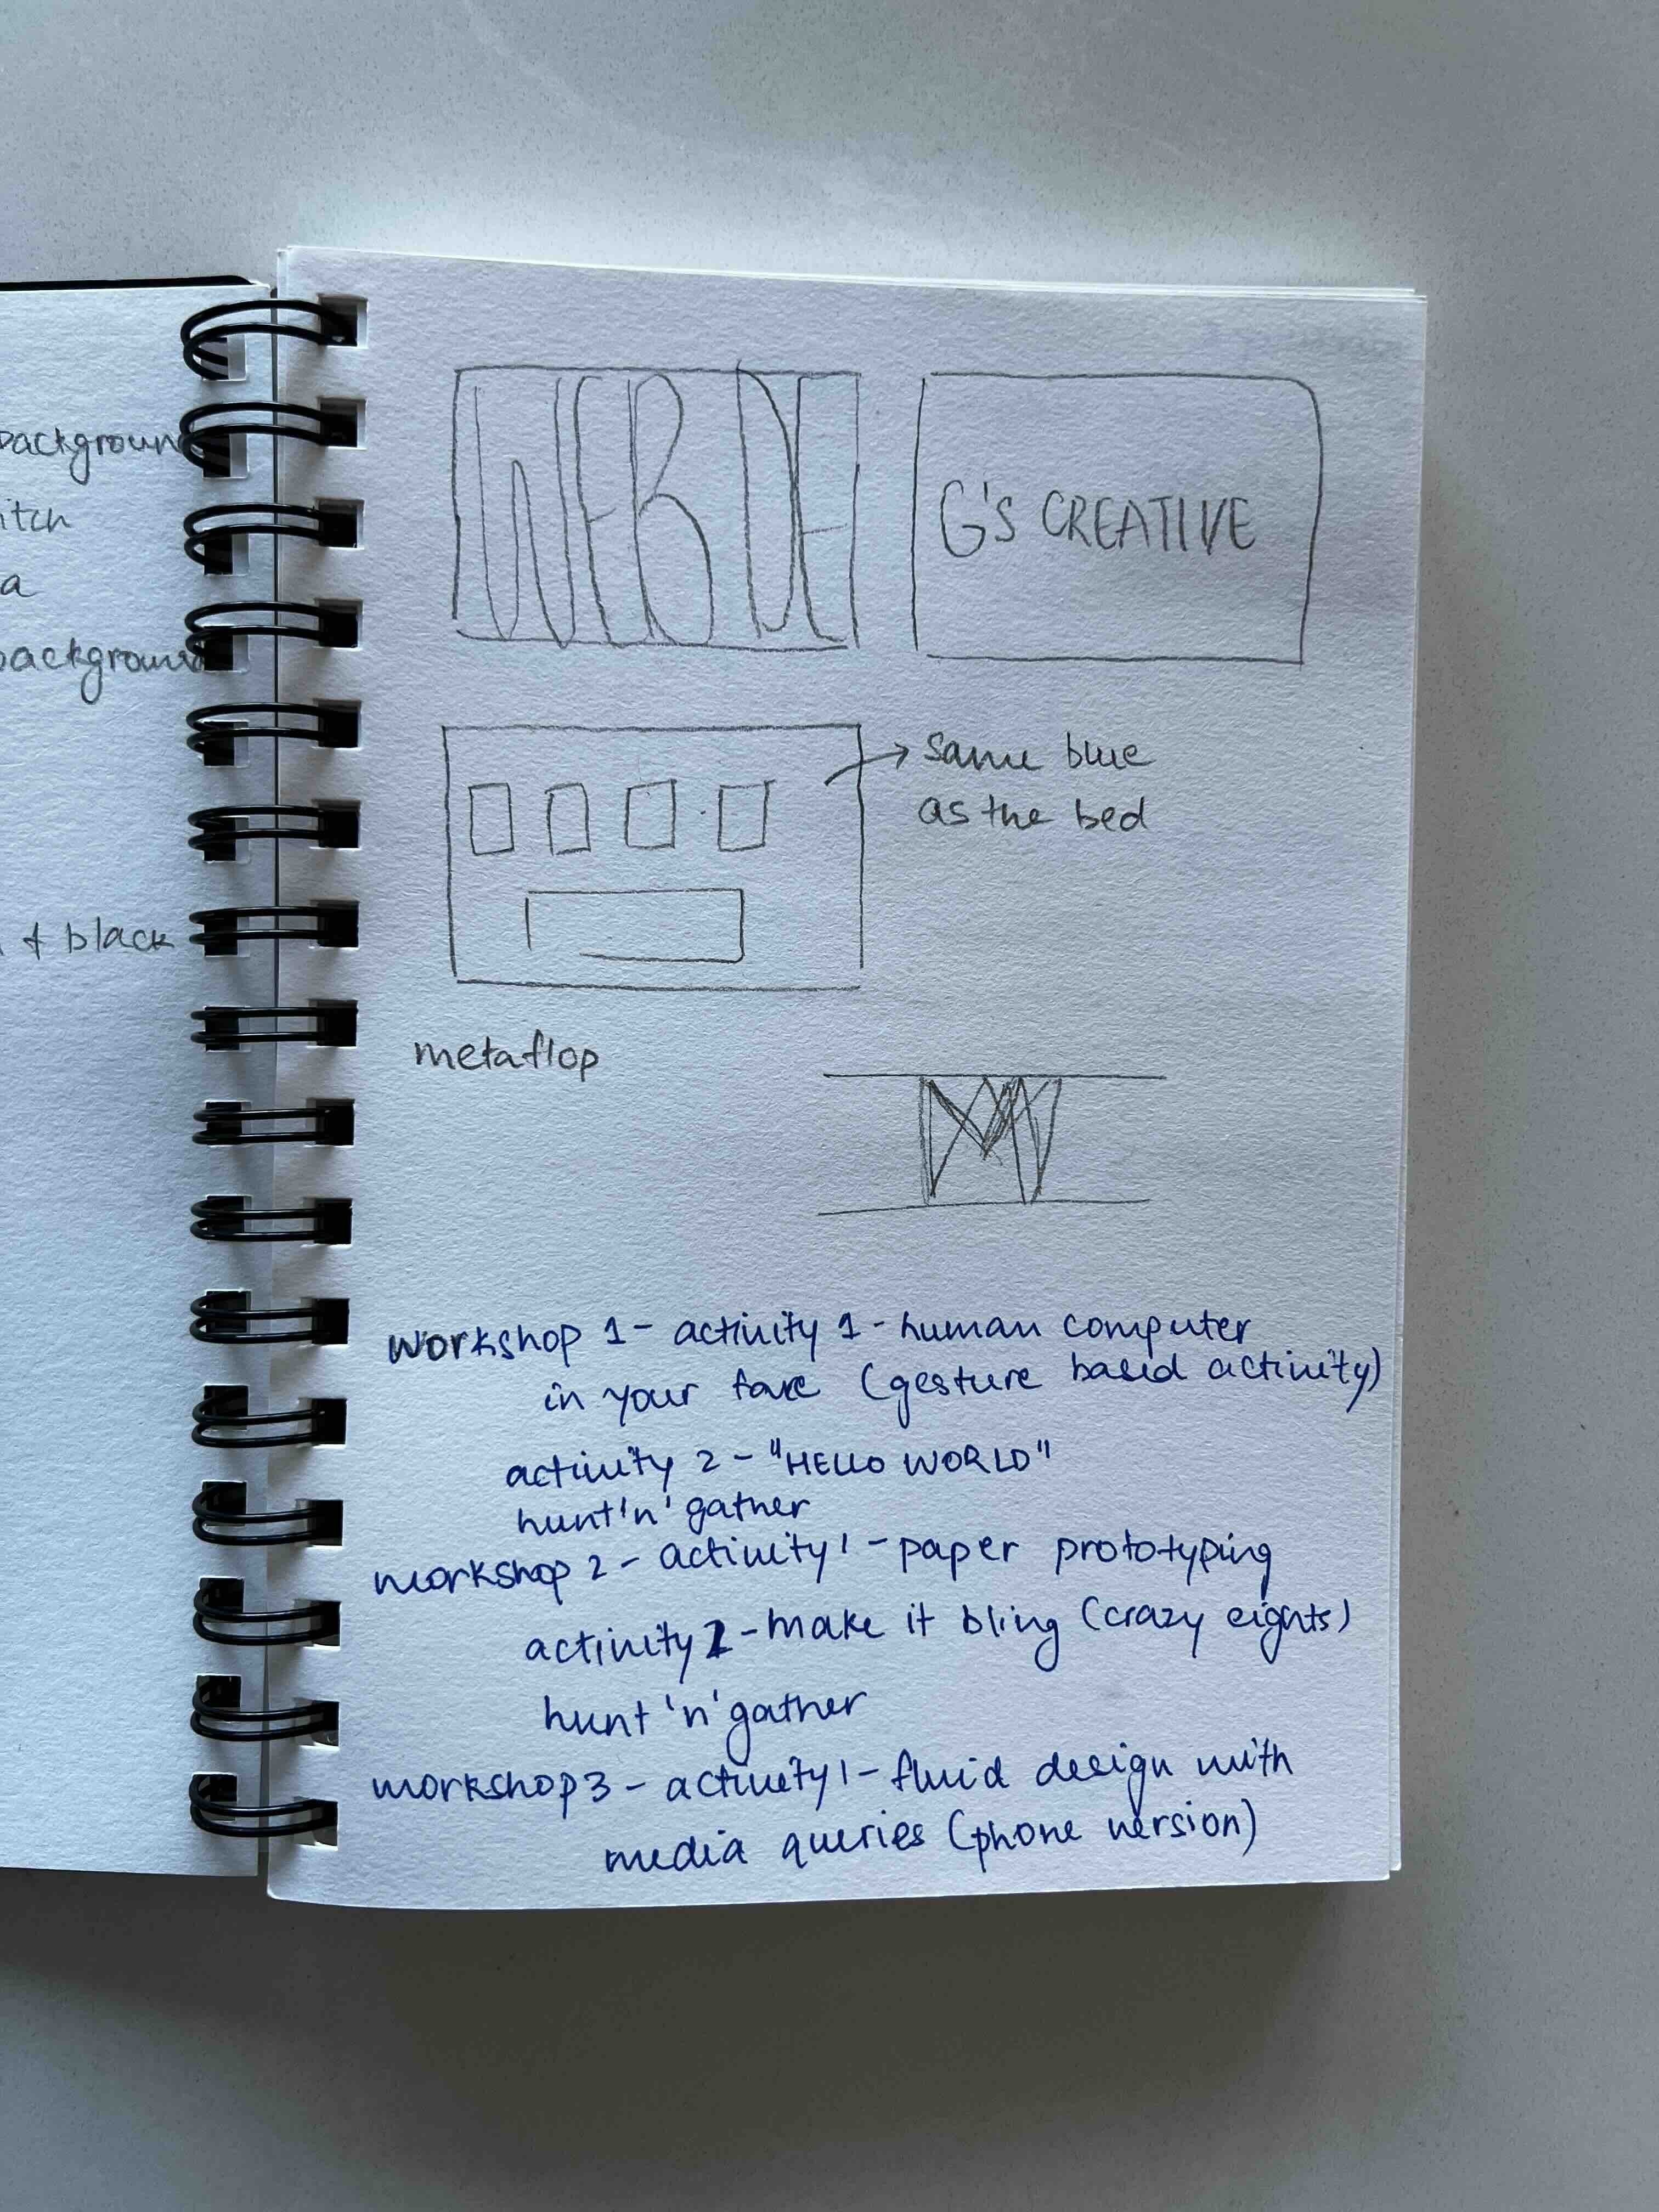 background
itch
a
background
& black
WEB DE
G'S CREATIVE
same blue
as the bed
metaflop
workshop 1 - activity 1 - human computer
in your face (gesture based activity)
activity 2 - "HELLO WORLD"
hunt 'n' gather
workshop 2 - activity 1 - paper prototyping
activity 2 - make it bling (crazy eights)
hunt 'n' gather
workshop 3 - activity 1 - fluid design with
media queries (phone version)